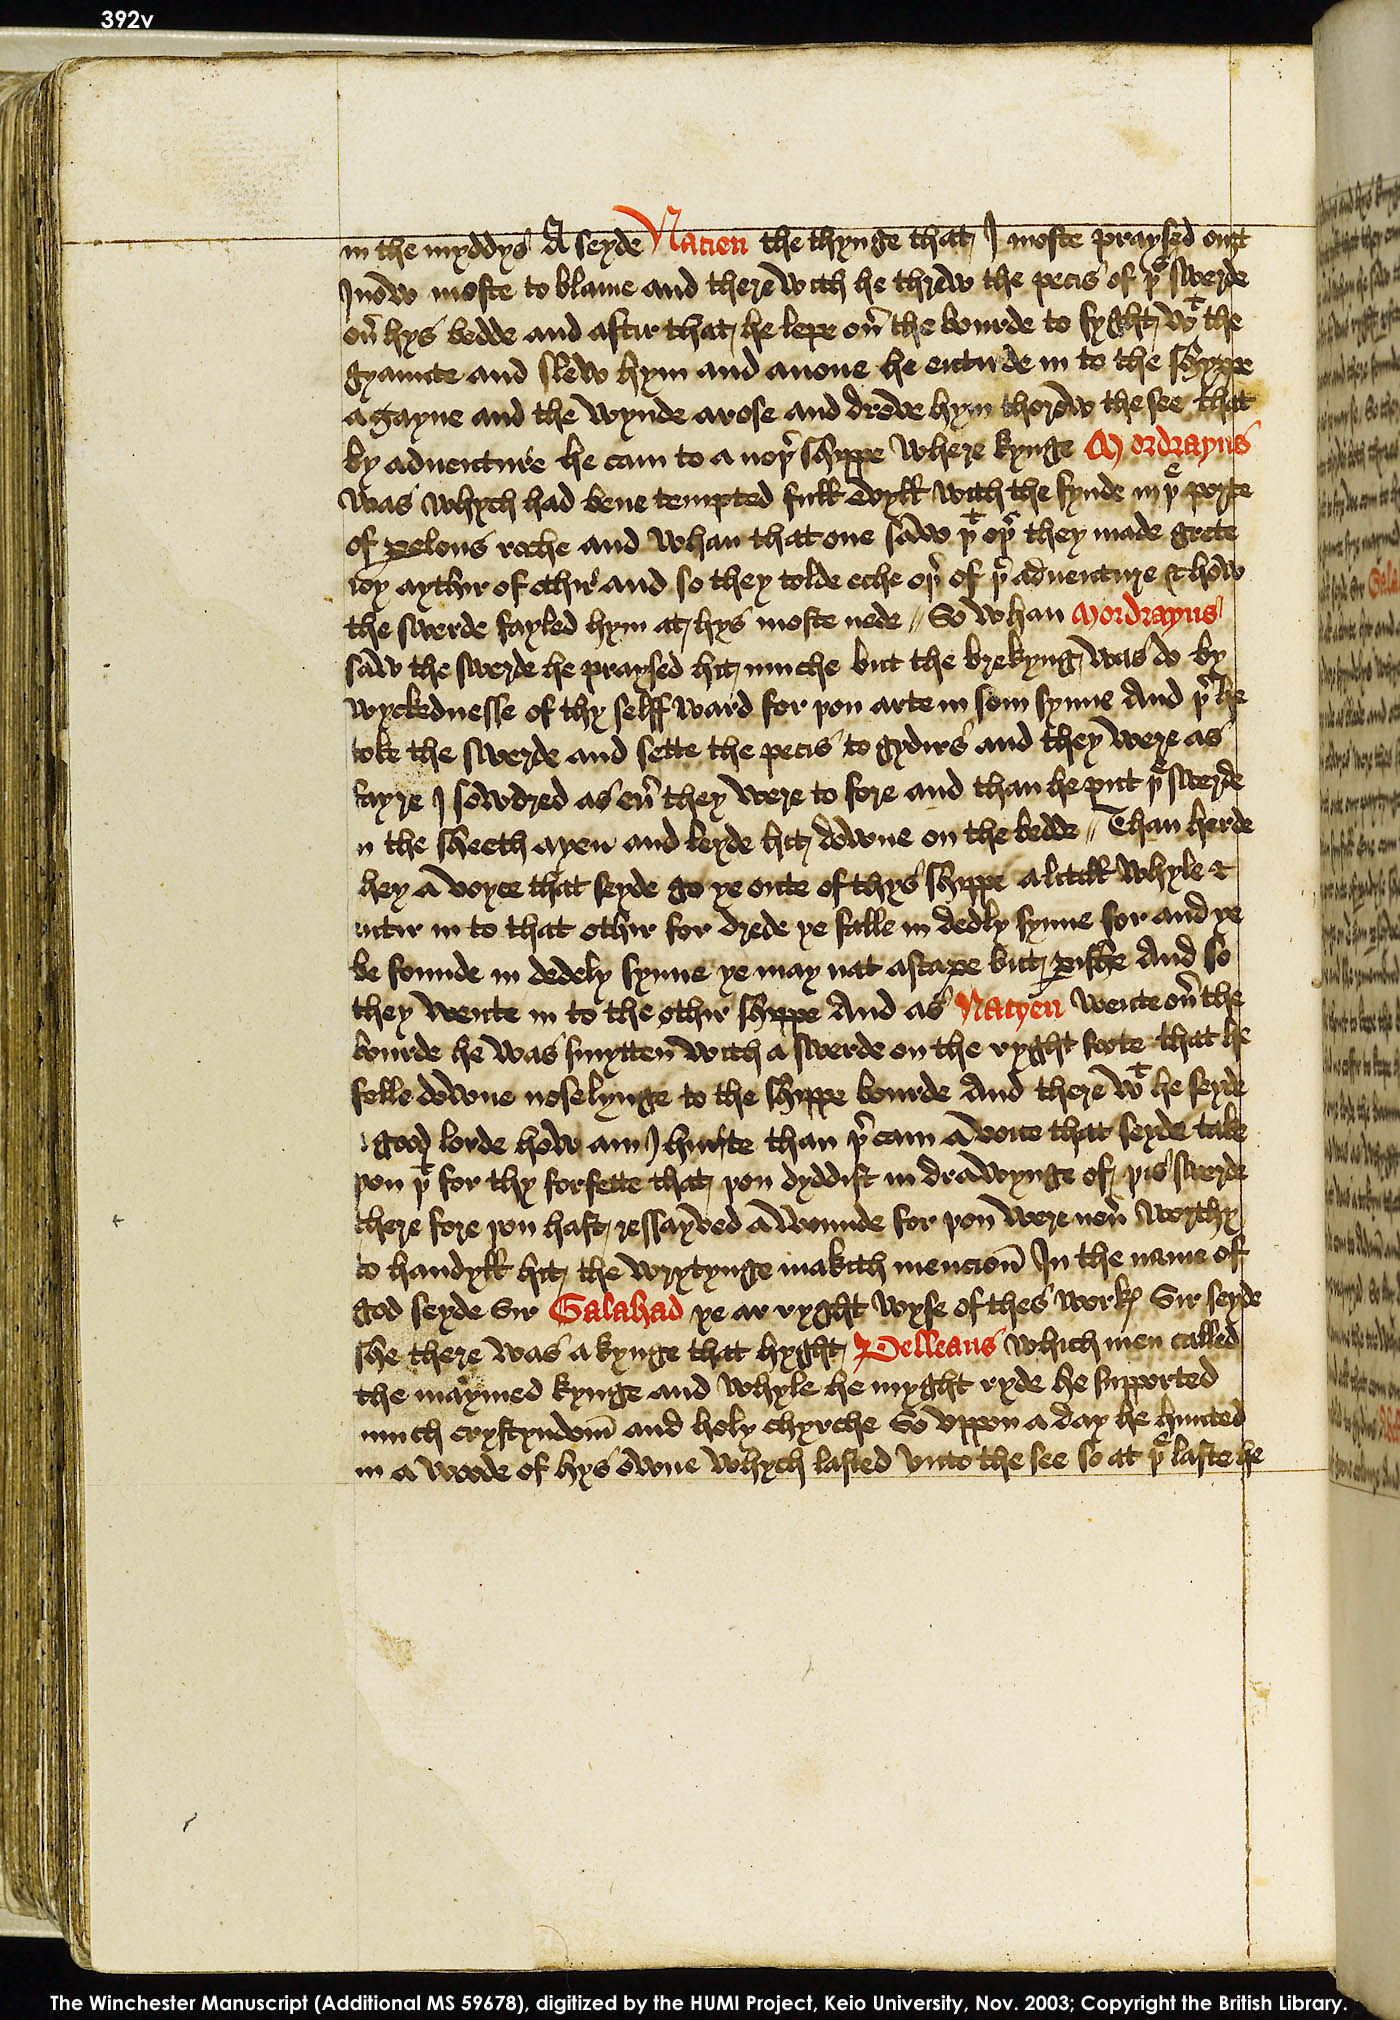 392v
in the myddys A seyde Nacien the thynge that I moste praysed ouȝt
I now moste to blame and therewith he threw the pecis of þe swerde
on hys bedde and aftir that he lepe on the bourde to fyght wt the
gyaunte and slew hym and anone he entirde in to the shyppe
agayne and the wynde arose and drove hym thorow the see that
by adventure he cam to a noþr shippe where kynge Mordrayns
was whych had bene tempted full evyll with the fynde in þe porte
of Pelous roche and whan that one saw þt oþr they made grete
ioy aythir of othir and so they tolde eche oþr of þr adventure & how
the swerde fayled hym at hys moste nede // So whan Mordrayns
saw the swerde he praysed hit muche but the brekyng was do by
wyckednesse of thy selff ward for þou arte in som synne And þr he
toke the swerde and sette the pecis to gydirs and they were as
fayre I sowdred as evir they were to fore and than he put þe swerde
n the sheeth ayen and leyde hit downe on the bedde // Than herde
hey a voyce that seyde go ye oute of thys shippe a litill whyle &
ntir in to that othir for drede ye falle in dedly synne for and ye
be founde in dedely synne ye may nat ascape but pishe And so
they wente in to the othir shippe And as Nacyen wente on the
bourde he was smytten with a swerde on the ryght foote that he
felle downe noselynge to the shippe bourde And there wt he seyde
good lorde how am I hurte than þr cam a voice that seyde take
þou þt for thy forfette that þou dyddist in drawynge of þis swerde
there fore þou hast ressayved a wounde for þou were nevir worthy
to handyll hit the wrytynge makith mencion In the name of
god seyde Sir Galahad ye ar ryght wyse of thes workes Sir seyde
she there was a kynge that hyght Pelleaus which men called
the maymed kynge and whyle he myght ryde he supported
much crystyndom and holy chyrche So uppon a day he hunted
in a woode of hys owne whych lasted unto the see so at þe laste he
The Winchester Manuscript (Additional MS 59678), digitized by the HUMI Project, Keio University, Nov. 2003; Copyright the British Library.